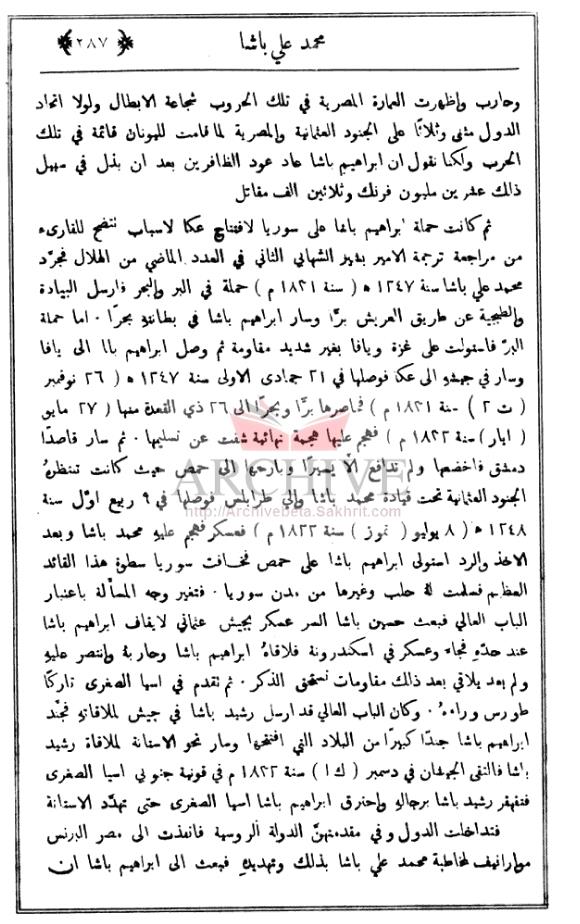 محمد علي باشا
﴿ ٢٨٧ ﴾
وحارب واظهرت العمارة المصرية في تلك الحروب شجاعة الابطال ولولا اتحاد
الدول مثنى وثلاثًا على الجنود العثمانية والمصرية لما قامت لليونان قائمة في تلك
الحرب ولكنا نقول ان ابراهيم باشا عاد عود الظافرين بعد ان بذل في سبيل
ذلك عشرين مليون فرنك وثلاثين الف مقاتل
ثم كانت حملة ابراهيم باشا على سوريا لافتتاح عكا لاسباب تتضح للقارىء
من مراجعة ترجمة الامير بشير الشهابي الثاني في العدد الماضي من الهلال فجرَّد
محمد علي باشا سنة ١٢٤٧ ه ( سنة ١٨٣١ م ) حملة في البر والبحر فارسل البيادة
والطبجية عن طريق العريش برًّا وسار ابراهيم باشا في بطانتهِ بحرًا ٠ اما حملة
البرّ فاستولت على غزة ويافا بغير شديد مقاومة ثم وصل ابراهيم باشا الى يافا
وسار في جيشهِ الى عكا فوصلها في ٢١ جمادى الاولى سنة ١٢٤٧ ه ( ٢٦ نوفمبر
( ت ٢ ) سنة ١٨٣١ م ) فحاصرها برًّا وبحرًا الى ٢٦ ذي القعدة منها ( ٢٧ مايو
( ايار ) سنة ١٨٣٢ م ) فهجم عليها هجمة نهائية شفت عن تسليمها ٠ ثم سار قاصدًا
دمشق فاخضعها ولم تدافع الاَّ يسيرًا وبارحها الى حمص حيث كانت تنتظرهُ
الجنود العثمانية تحت قيادة محمد باشا والي طرابلس فوصلها في ٩ ربيع اوَّل سنة
١٢٤٨ ه ( ٨ يوليو ( تموز ) سنة ١٨٣٢ م ) فعسكر فهجم عليهِ محمد باشا وبعد
الاخذ والرد استولى ابراهيم باشا على حمص فخافت سوريا سطوة هذا القائد
العظيم فسلمت لهُ حلب وغيرها من مدن سوريا ٠ فتغير وجه المسألة باعتبار
الباب العالي فبعث حسين باشا السر عسكر بجيش عثماني لايقاف ابراهيم باشا
عند حدّهِ فجاء وعسكر في اسكندرونة فلاقاهُ ابراهيم باشا وحاربهُ وانتصر عليهِ
ولم يعد يلاقي بعد ذلك مقاومات تستحق الذكر ٠ ثم تقدم في اسيا الصغرى تاركًا
طورس وراءهُ ٠ وكان الباب العالي قد ارسل رشيد باشا في جيش لملاقاتهِ فجنَّد
ابراهيم باشا جندًا كبيرًا من البلاد التي افتتحها وسار نحو الاستانة لملاقاة رشيد
باشا فالتقى الجيشان في دسمبر ( ك١ ) سنة ١٨٣٢ م في قونية جنوبي اسيا الصغرى
فتقهقر رشيد باشا برجالهِ واخترق ابراهيم باشا اسيا الصغرى حتى تهدَّد الاستانة
فتداخلت الدول وفي مقدمتهنَّ الدولة الروسية فانفذت الى مصر البرنس
مورانيف لمخاطبة محمد علي باشا بذلك وتهديدهِ فبعث الى ابراهيم باشا ان
ARCHIVE
http://Archivebeta.Sakhrit.com